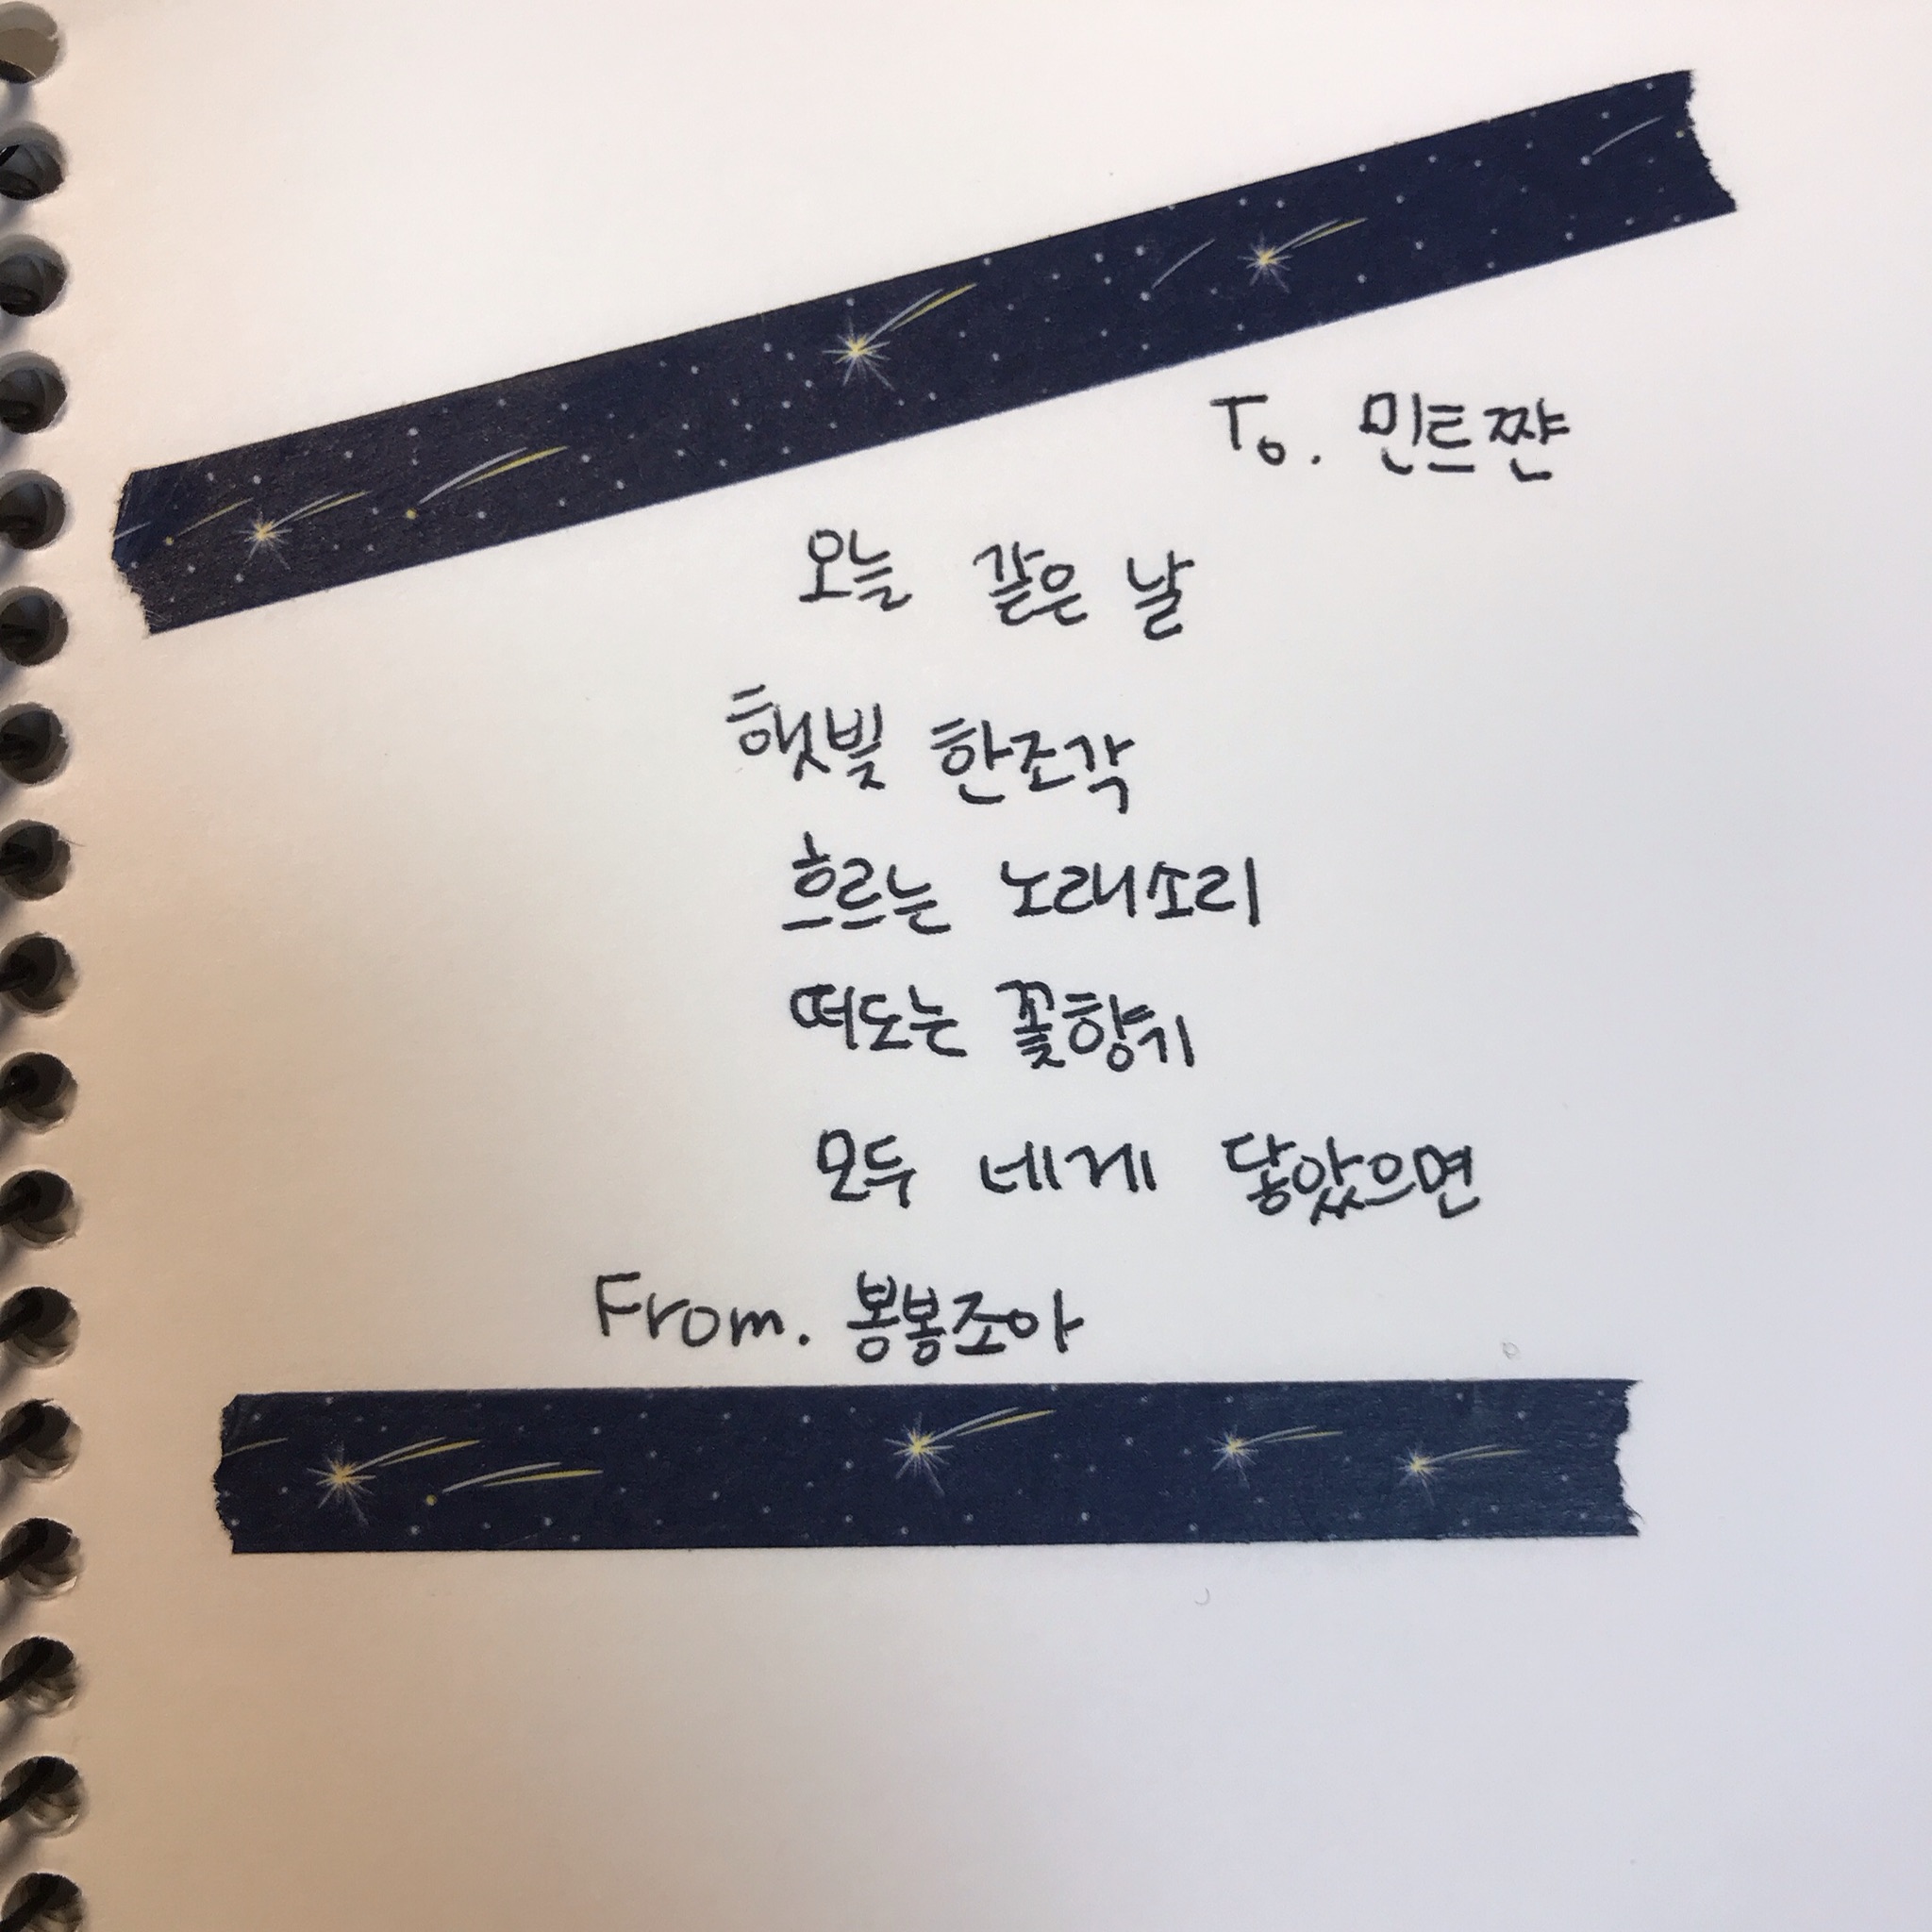 To. 민트쨘
오늘 같은 날
햇빛 한조각
흐르는 노래소리
떠도는 꽃향기
모두 네게 닿았으면
From. 봉봉조아